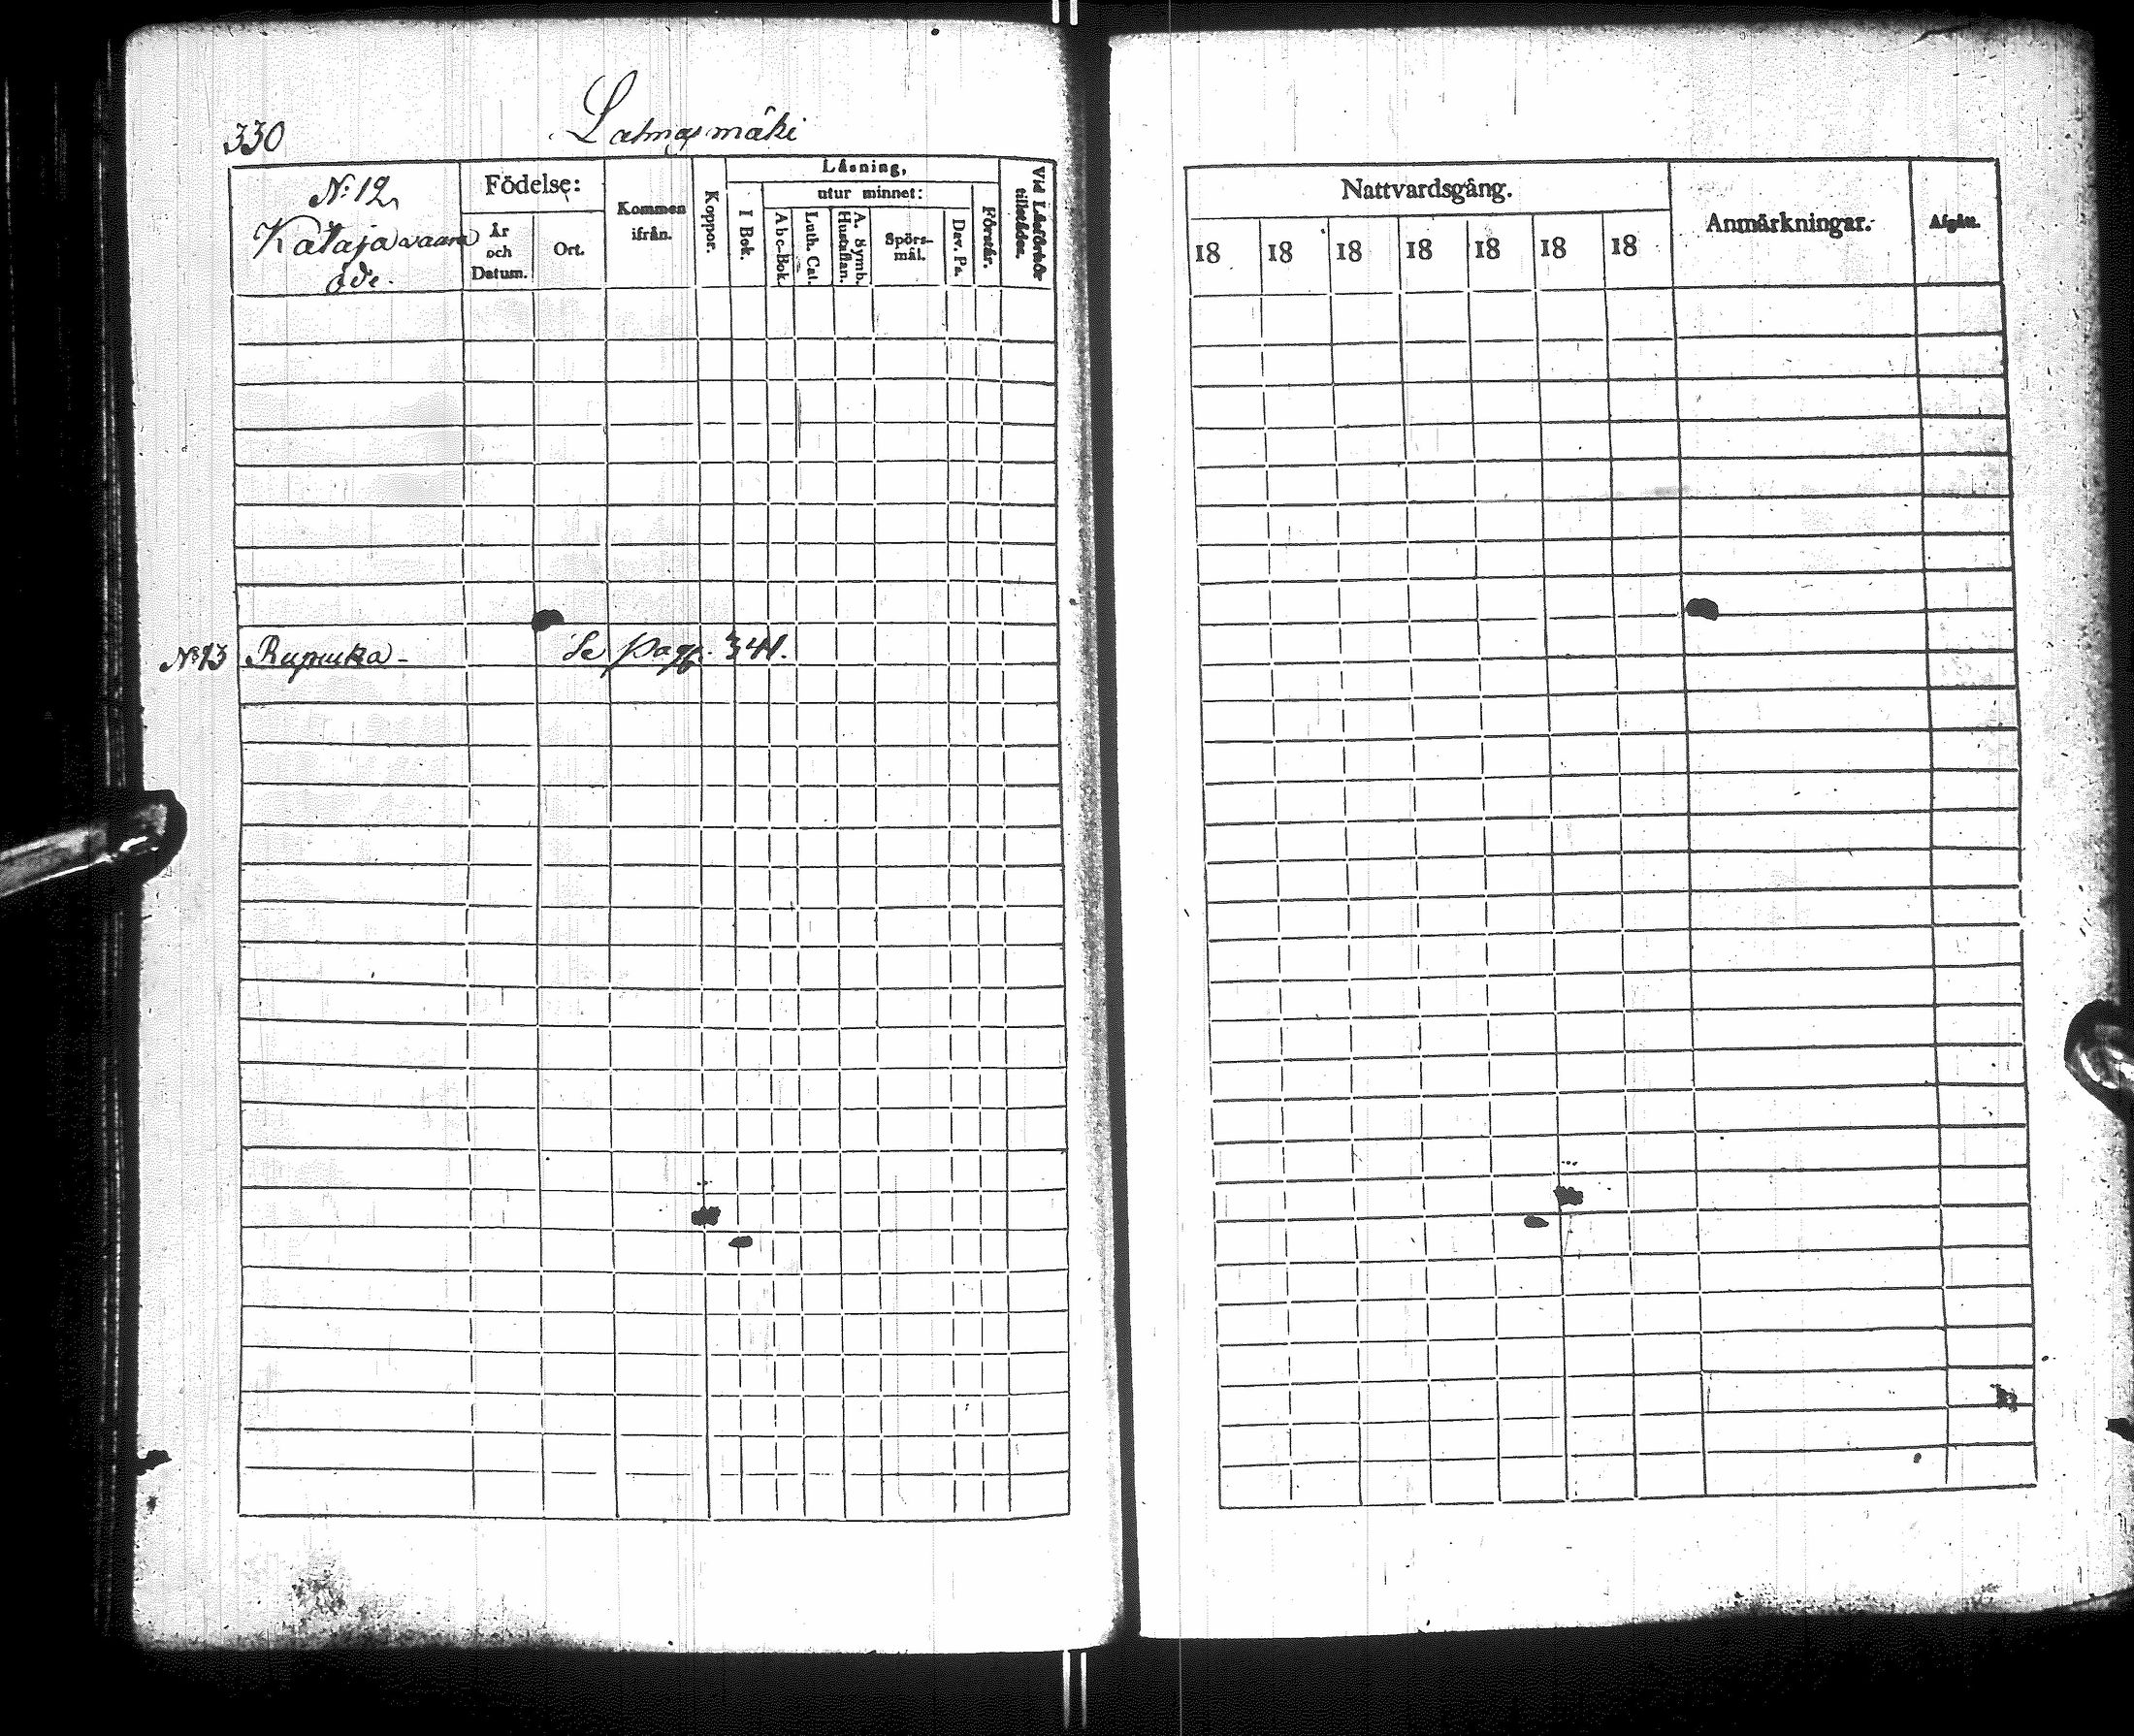 330
N:o 12
Katajavaara
öde.
Födelse:
År
och
Datum.
Ort.
Kommen
ifrån.
Koppor.
Läsning,
I Bok.
utur minnet:
Abc-Bok.
Luth. Cat.
A. Symb.
Hustaflan.
Spörs-
mål.
Dav. Ps.
Förstår.
Vid Läseförhör
tillstädes.
N:o 13 Rupukka- Se pag. 341.
Nattvardsgång.
18 18 18 18 18 18 18
Anmärkningar.
Afgått.